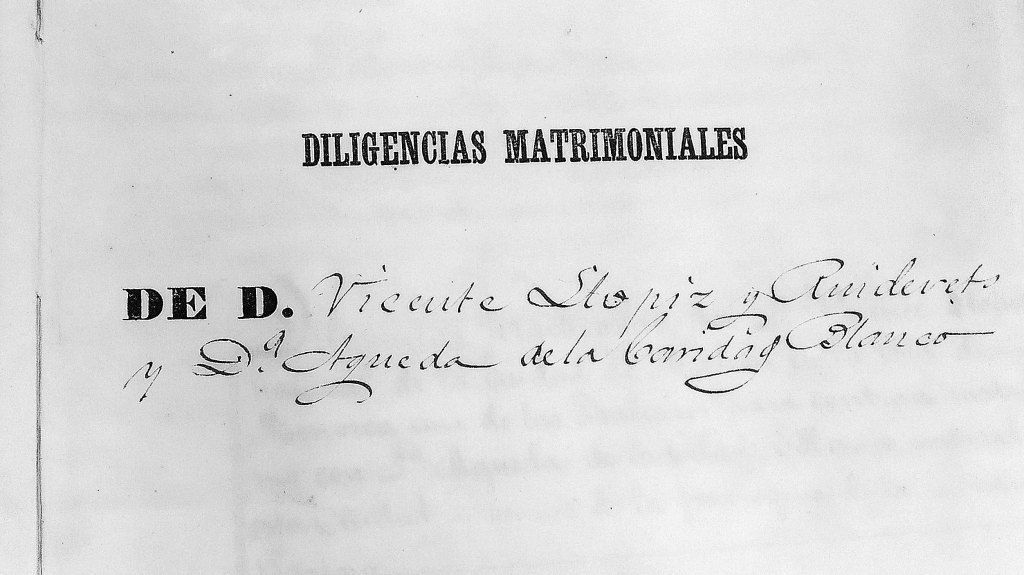 DILIGENCIAS MATRIMONIALES
DE D. Vicente Llopiz y
y D.ª Agueda de la Caridad Blanco